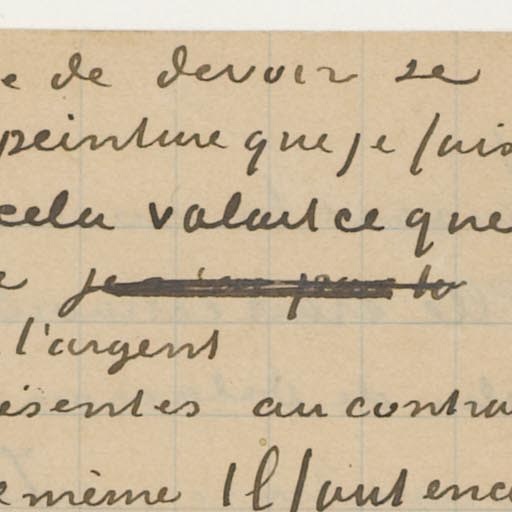 e de devoir se
peinture que je fais
cela valait ce que
e je
l'argent
ésentes au contra
e même Il faut enc